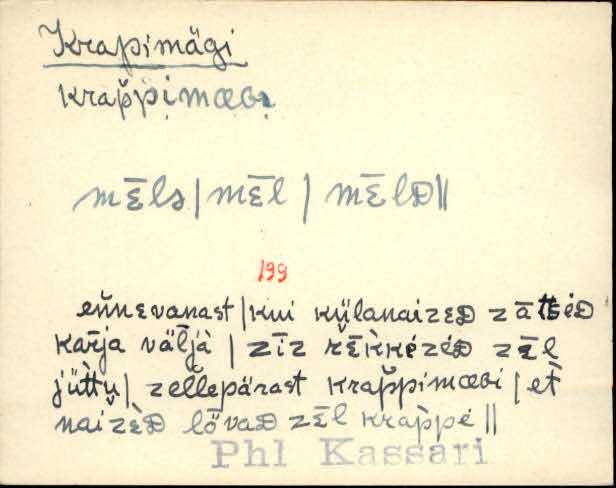 Krapimägi
krap̆pimæɢi
mēls | mēl | mēlᴅ ||
199
eňnevanast | kui külanaizeᴅ zātseᴅ
karja väljà | zīz rɛ̄kkézéᴅ zɛ̄l
jüttu | zelľepärast krap̆pimæɢi | et̀
naizèᴅ lövaᴅ zɛ̄l krap̀pe ||
Phl Kassari